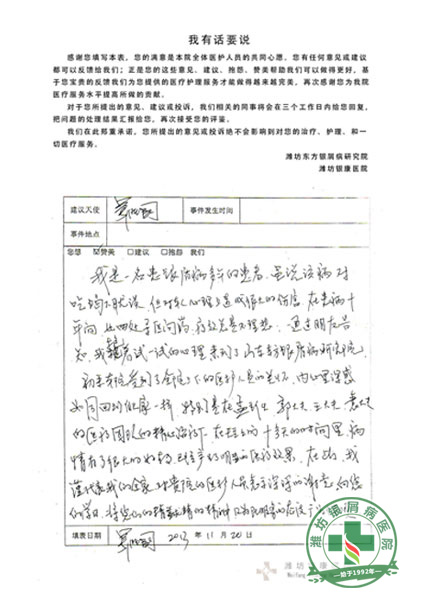 我有话要说
感谢您填写本表，您的满意是本院全体医护人员的共同心愿。您有任何意见或建议
都可以反馈给我们；正是您的这些意见、建议、抱怨、赞美帮助我们可以做得更好。基
于您宝贵的反馈我们为您提供的医疗护理服务才能做得越来越完美。再次感谢您为我院
医疗服务水平提高所做的贡献。
对于您所提出的意见、建议或投诉，我们相关的同事将会在三个工作日内给您回复，
把问题的处理结果汇报给您，再次接受您的评鉴。
我们在此郑重承诺，您所提出的意见或投诉绝不会影响到对您的治疗、护理、和一
切医疗服务。
潍坊东方银屑病研究院
潍坊银康医院
建议天使
事件发生时间
事件地点
您想 ☑赞美 □建议 □抱怨 我们
我是一名患银屑病多年的患者，虽说该病对
吃喝不耽误，但对心理上造成很大的伤害，在患病十
年间，四处寻医问药，疗效总是不理想。通过朋友告
知，我抱着试一试的心理来到了山东东方银屑病研究院，
初来贵院受到了全院上下的医护人员的关怀，内心里深感
如同回到似家一样，特别是在孟 郭大夫 王大夫
的医疗团队的精心治疗下，在短短的十多天的时间里，病
情有了很大的好转，医疗效果，在此，我
谨代表我的全家对贵院的医护人员表示深深的谢意，向您
们学习
填表日期
2013年11月20日
潍坊银康医院
Weifang
潍坊银屑病医院
始于1992年